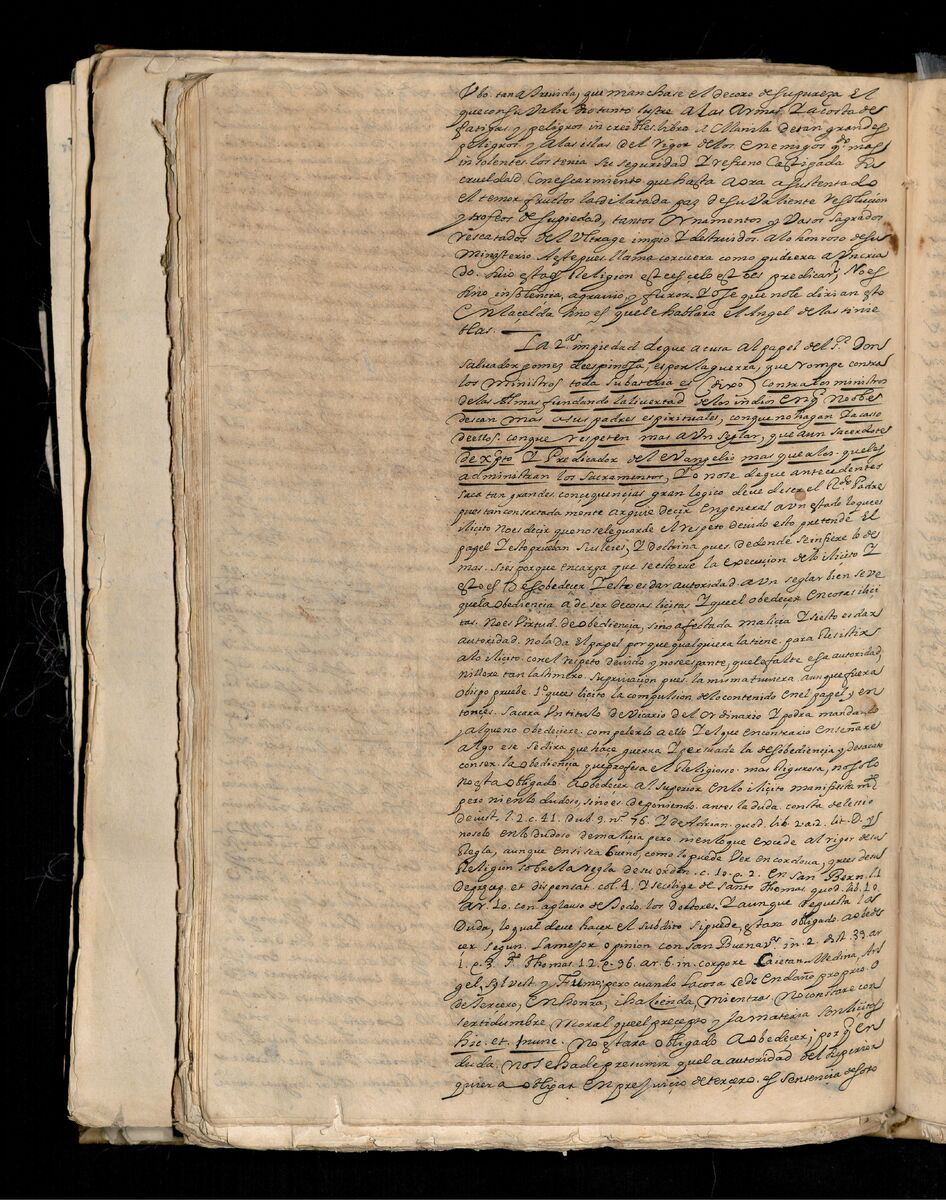 Vbo. tan atreuida, que manchase el decoro de supureza El
que con su Valor dio tanto lustre a las Armas, Y a costa de
fatigas y peligros in creibles. libro a Manila de tan grandes
peligros, y alas islas del Rigor delos Enemigos qdo. mas
insolentes. los tenia su seguridad Y refreno Castigada su
crueldad. Con escarmiento que hasta aora a sustentado
el temor. fructos la dilatada paz desu Valiente resolucion
y trofeos de supiedad, tantos Ornamentos y Vasos sagrados
rescatados del Vltrage impio Y destruidos alo honroso desu
Ministerio. Aeste pues llama corcuera como pudiera a Vn cria
do. suio esta es Religion este es celo esto es predicar, No es
sino insolencia, agrauio, y furor. Y se que no le dirian esto
En la celda sino es que le hablara el Angel de las tinie
blas.
La 2a. impiedad de que acusa al papel del Sr. Don
Saluador gomez de espinosa, es por la guerra, que rompe contra
los Ministros toda su bateria es (dixo) contra los ministros
de las Almas fundando la liuertad de los indios En q. No obe
descan mas a sus padres espirituales, con que no hagan Ya casso
dellos. con que respeten mas a Vn seglar, que a un sacerdote
de xpto. Y Predicador del Evangelio mas que a los. queles
administran los Sacramentos, Yo no se de que antecedentes
saca tan grandes. consequencias gran logico deve de ser el Rdo. Padre
pues tan consertada mente arguie decir En general a vn estado lo que es
ilicito No es decir que no sele guarde el respeto deuido esto pretende El
papel Y esto prueban sus leies, Y doctrina pues. de donde se infiere lo de
mas. si es por que encarga que se estorue la execucion delo ilicito Y
esto es desobedecer Y este es dar autoridad. a vn seglar bien se ve
que la obediencia a de ser de cosas licitas Y que el obedecer En cosas ilici
tas. No es Virtud. de obediencia, sino afectada malicia Y si esto es dar
autoridad. no la da el papel por que qualquiera la tiene. para Resistir
a lo ilicito. con el respeto deuido y no se espante, que le falte esa autoridad,
ni llore tan lastimero. su priuacion pues. la misma tuviera. aunque fuera
obispo pruebe 1o. que es licito la compulsion delo contenido En el papel y en
tonces. sacara Vn titulo de Vicario del Ordinario Y podra mandarlo
y al que no obedeciere. compelerlo a ello Y el que En contrario Enseñare
algo ese se dira que hace guerra Y persuade la desobediencia y desacato
con ser. la obediencia que profesa el Religioso. mas Rigurosa, no solo
No esta obligado. a obedecer al superior En lo ilicito manifiesta mte.
pero ni en lo dudoso, sino es deponiendo. antes la duda. consta de lesio
de iust. l. 2. c. 41. dub. 9. no. 76. Y de Adrian. quod. lib. 2. a. 2. lit. D. y
no solo en lo dudoso de malicia pero. ni en lo que Excede al rigor desu
Regla, aunque En si sea bueno, como lo puede Ver En cordoua, que es desu
Religion sobre la regla de su orden. c. 10. q. 2. En san Bern. l.
De precep. et dispensat. col. 4. Y se colige de Santo Thomas. quod. lib. 10.
ar. 10. con aplauso de todo. los doctores. Y aunque re puesta las
duda, lo qual deve hacer el subdito si puede, estara obligado. a obede
cer segun. la mejor opinion con san Buenavra. in. 2. dist. 39. ar
1. q. 3. Sto. Thomas 1. 2. q. 96. ar. 6. in. corpore. Caietan. Medina, An
gel, Silvest. y Fumo; pero cuando la cosa cede En daño proprio. O
de tercero, En honra, i hacienda, mientras. No constare con
sertidumbre moral que el precepto y la materia son licitos
hic. et. nunc. No estara obligado a obedecer; por q. En
duda. no se ha de presumir que la autoridad del superior
quiera obligar En prejuicio de tercero. es Sentencia de soto